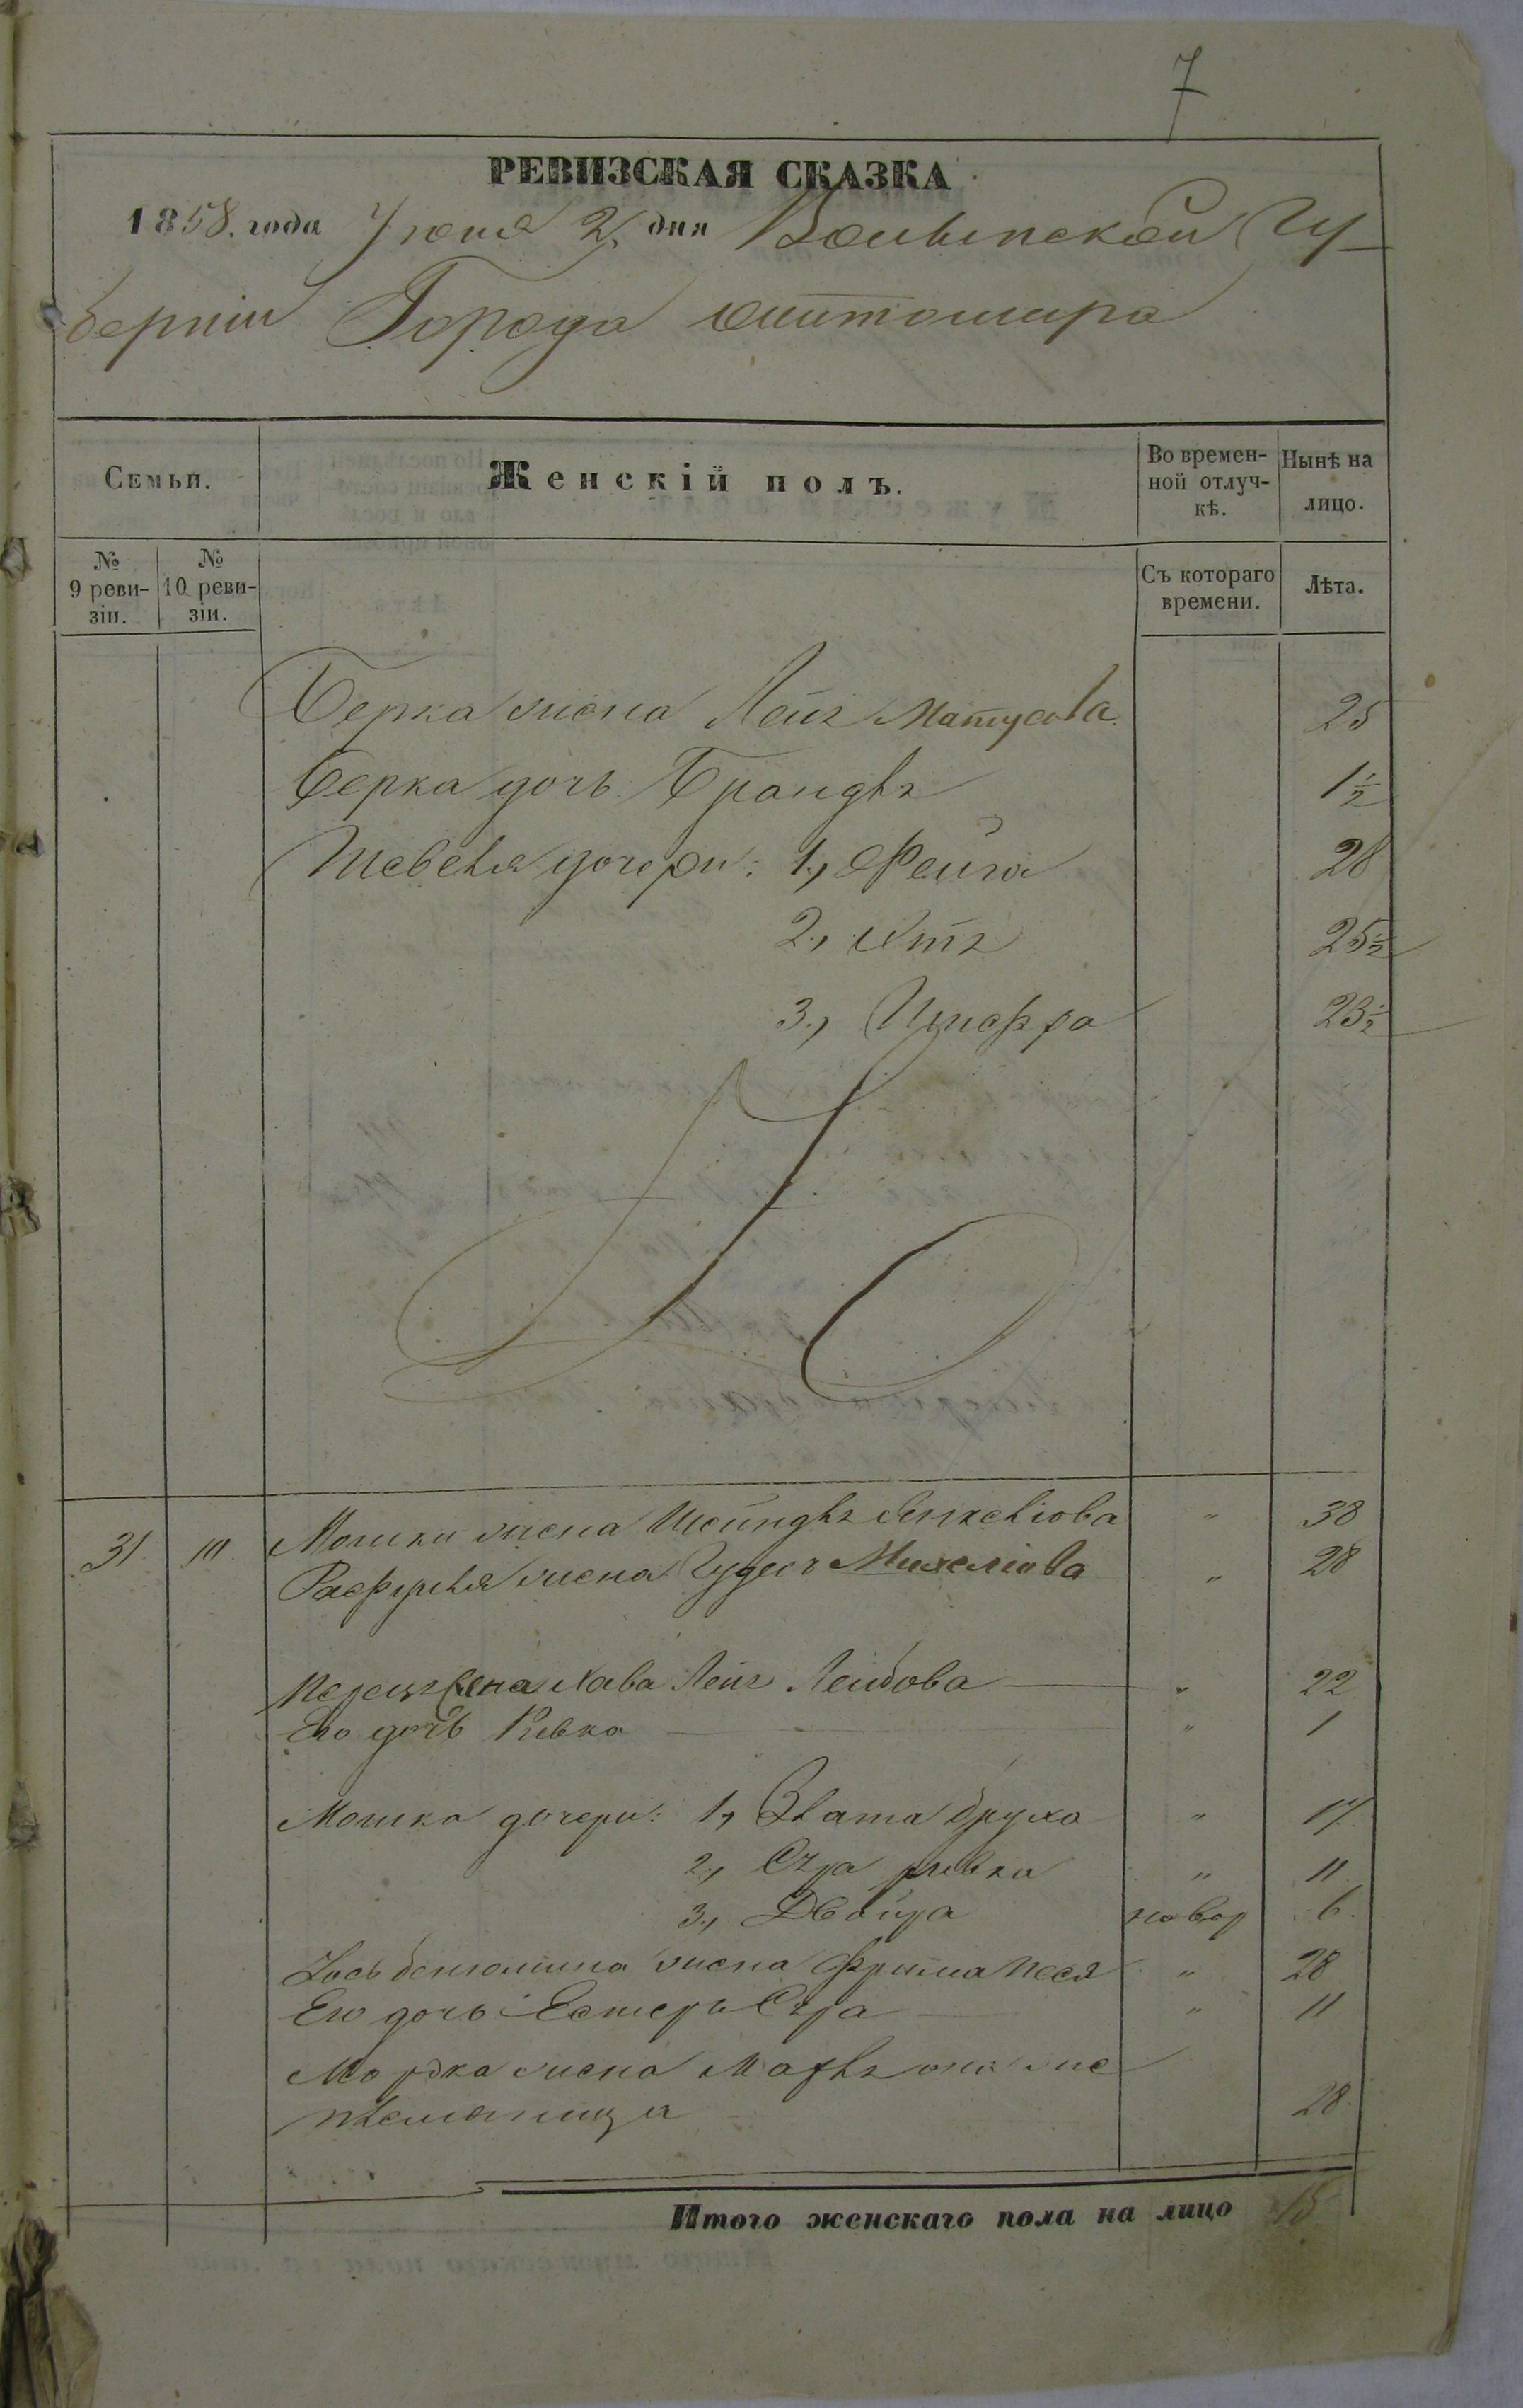 7
РЕВИЗСКАЯ СКАЗКА
1858. года Іюня 2, дня Волынской Гу-
берніи Города Житомира
Семьи.
Женскій полъ.
Во времен-
ной отлуч-
кѣ.
Нынѣ на
лицо.
№
9 реви-
зіи.
№
10 реви-
зіи.
Съ котораго
времени.
Лѣта.
Берка жена Лея Матусова 25
Берка дочь Брандля 1½
Шевеля дочери: 1., Фейга 28
2., 25½
3., 23½
31 10 Мошки жена Шейндля 38
жена Михелиова " 28
жена Хава Лея Лейбова " 22
Его дочь Ривка " 1
Мошка дочери: 1, Злата Бруха " 17
2., Сура Ривка " 11
3., Двойра 6.
жена Фрима Песя " 28
Его дочь Естеръ Сура " 11
Мордка жена
28
Итого женскаго пола на лицо 15